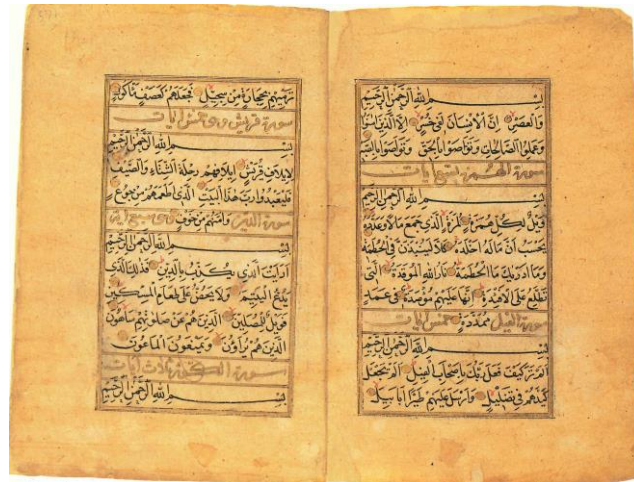 بسم الله الرحمن الرحيم
والعصر ان الانسان لفي خسر الا الذين امنوا
وعملوا الصالحات وتواصوا بالحق وتواصوا بالصبر
سورة الهمزة تسع ايات
بسم الله الرحمن الرحيم
ويل لكل همزة لمزة الذي جمع مالا وعدده
يحسب ان ماله اخلده كلا لينبذن في الحطمة
وما ادريك ما الحطمة نار الله الموقدة التي
تطلع على الافئدة انها عليهم مؤصدة في عمد
سورة الفيل ممددة خمس ايات
بسم الله الرحمن الرحيم
الم تر كيف فعل ربك باصحاب الفيل الم يجعل
كيدهم في تضليل وارسل عليهم طيرا ابابيل
ترميهم بحجارة من سجيل فجعلهم كعصف ماكول
سورة قريش وهي خمس ايات
بسم الله الرحمن الرحيم
لايلاف قريش ايلافهم رحلة الشتاء والصيف
فليعبدوا رب هذا البيت الذي اطعمهم من جوع
سورة الدين وامنهم من خوف وهي سبع اية
بسم الله الرحمن الرحيم
ارايت الذي يكذب بالدين فذلك الذي
يدع اليتيم ولا يحض على طعام المسكين
فويل للمصلين الذين هم عن صلوتهم ساهون
الذين هم يراؤن ويمنعون الماعون
سورة الكوثر ثلاث ايات
بسم الله الرحمن الرحيم